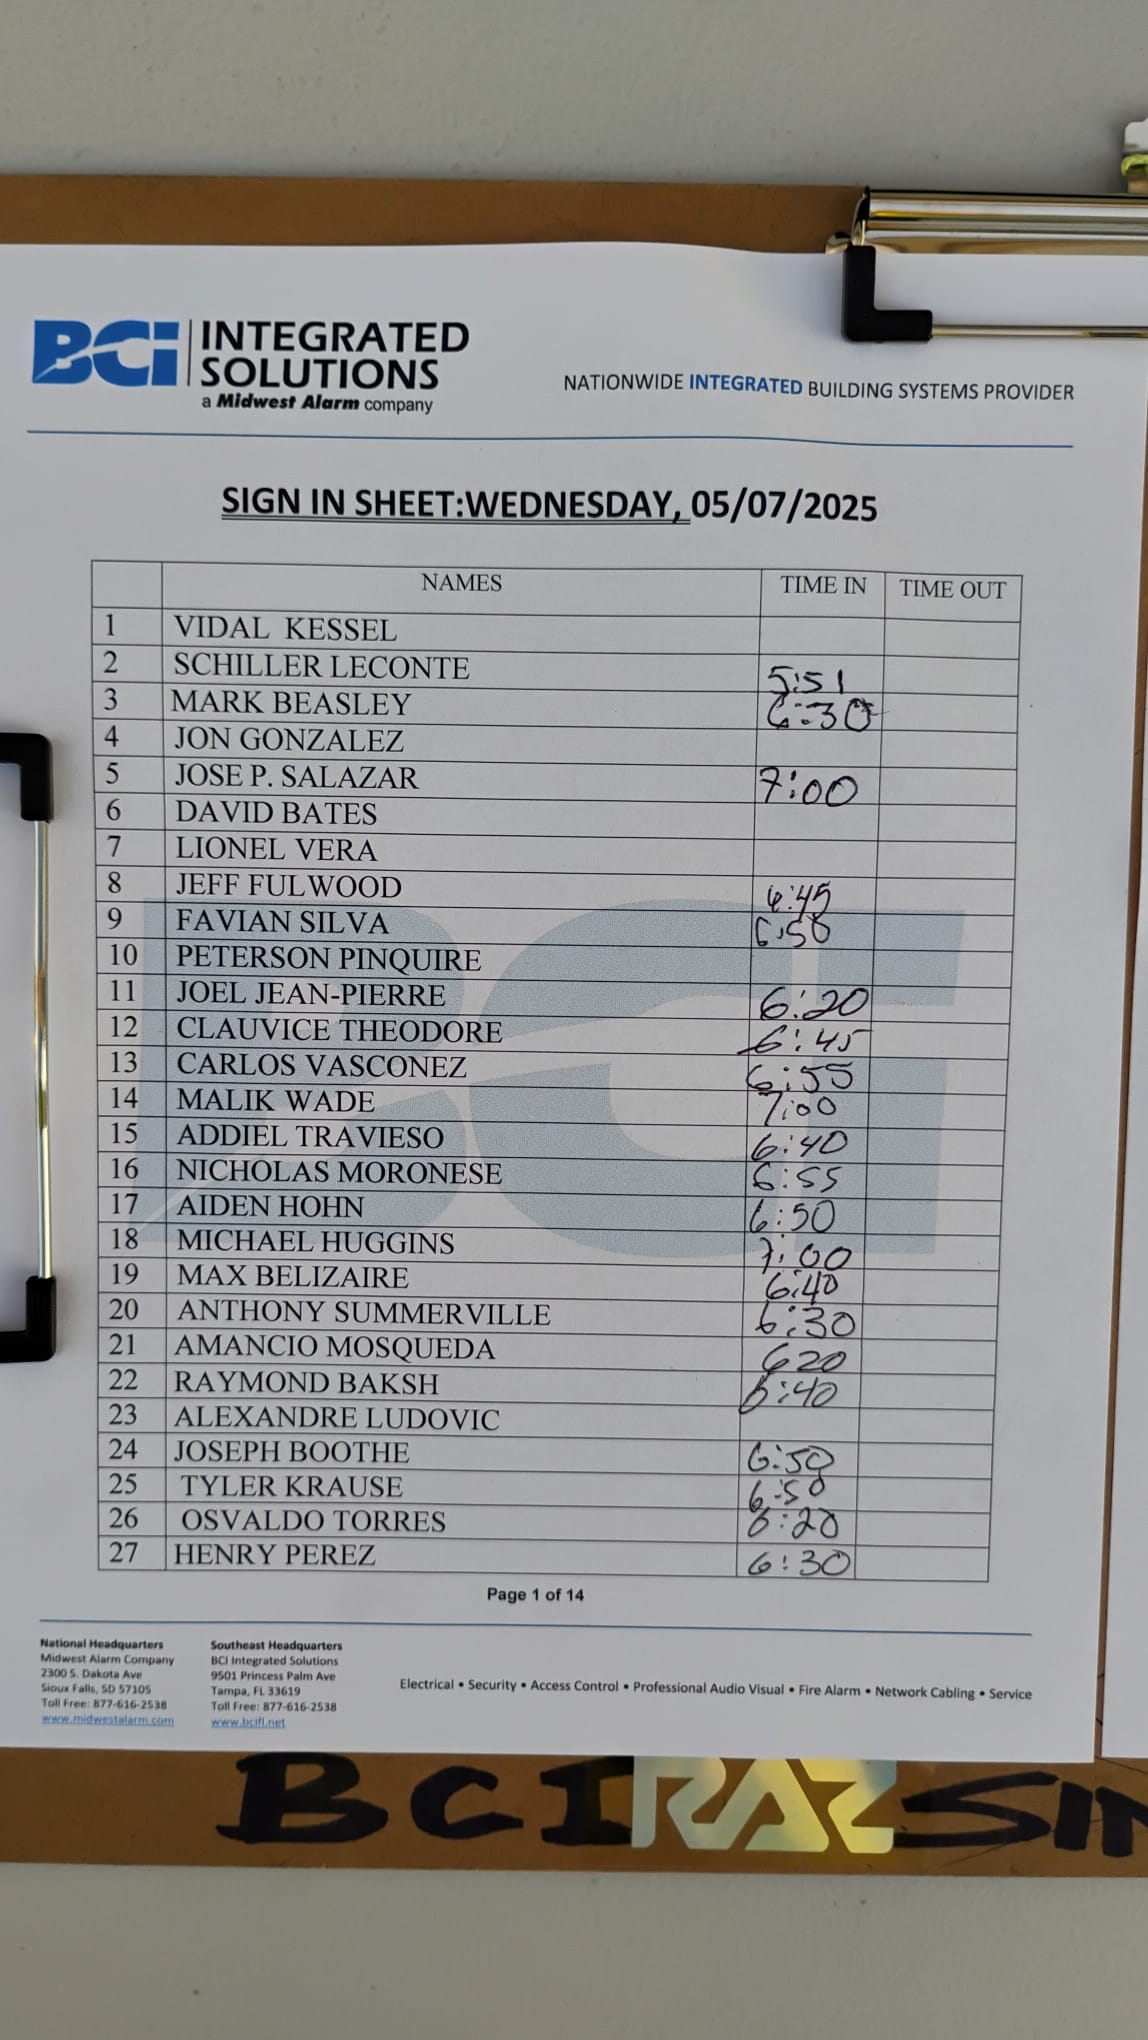 BCI INTEGRATED
SOLUTIONS
a Midwest Alarm company
NATIONWIDE INTEGRATED BUILDING SYSTEMS PROVIDER
SIGN IN SHEET:WEDNESDAY, 05/07/2025
NAMES TIME IN TIME OUT
1 VIDAL KESSEL
2 SCHILLER LECONTE 5:51
3 MARK BEASLEY 6:30
4 JON GONZALEZ
5 JOSE P. SALAZAR 7:00
6 DAVID BATES
7 LIONEL VERA
8 JEFF FULWOOD 6:45
9 FAVIAN SILVA 6:50
10 PETERSON PINQUIRE
11 JOEL JEAN-PIERRE 6:20
12 CLAUVICE THEODORE 6:45
13 CARLOS VASCONEZ 6:55
14 MALIK WADE 7:00
15 ADDIEL TRAVIESO 6:40
16 NICHOLAS MORONESE 6:55
17 AIDEN HOHN 6:50
18 MICHAEL HUGGINS 7:00
19 MAX BELIZAIRE 6:40
20 ANTHONY SUMMERVILLE 6:30
21 AMANCIO MOSQUEDA 620
22 RAYMOND BAKSH 6:40
23 ALEXANDRE LUDOVIC
24 JOSEPH BOOTHE 6:50
25 TYLER KRAUSE 6:50
26 OSVALDO TORRES 6:20
27 HENRY PEREZ 6:30
Page 1 of 14
National Headquarters
Midwest Alarm Company
2300 S. Dakota Ave
Sioux Falls, SD 57105
Toll Free: 877-616-2538
www.midwestalarm.com
Southeast Headquarters
BCI Integrated Solutions
9501 Princess Palm Ave
Tampa, FL 33619
Toll Free: 877-616-2538
www.bcifl.net
Electrical • Security • Access Control • Professional Audio Visual • Fire Alarm • Network Cabling • Service
BCI RAZ SIN